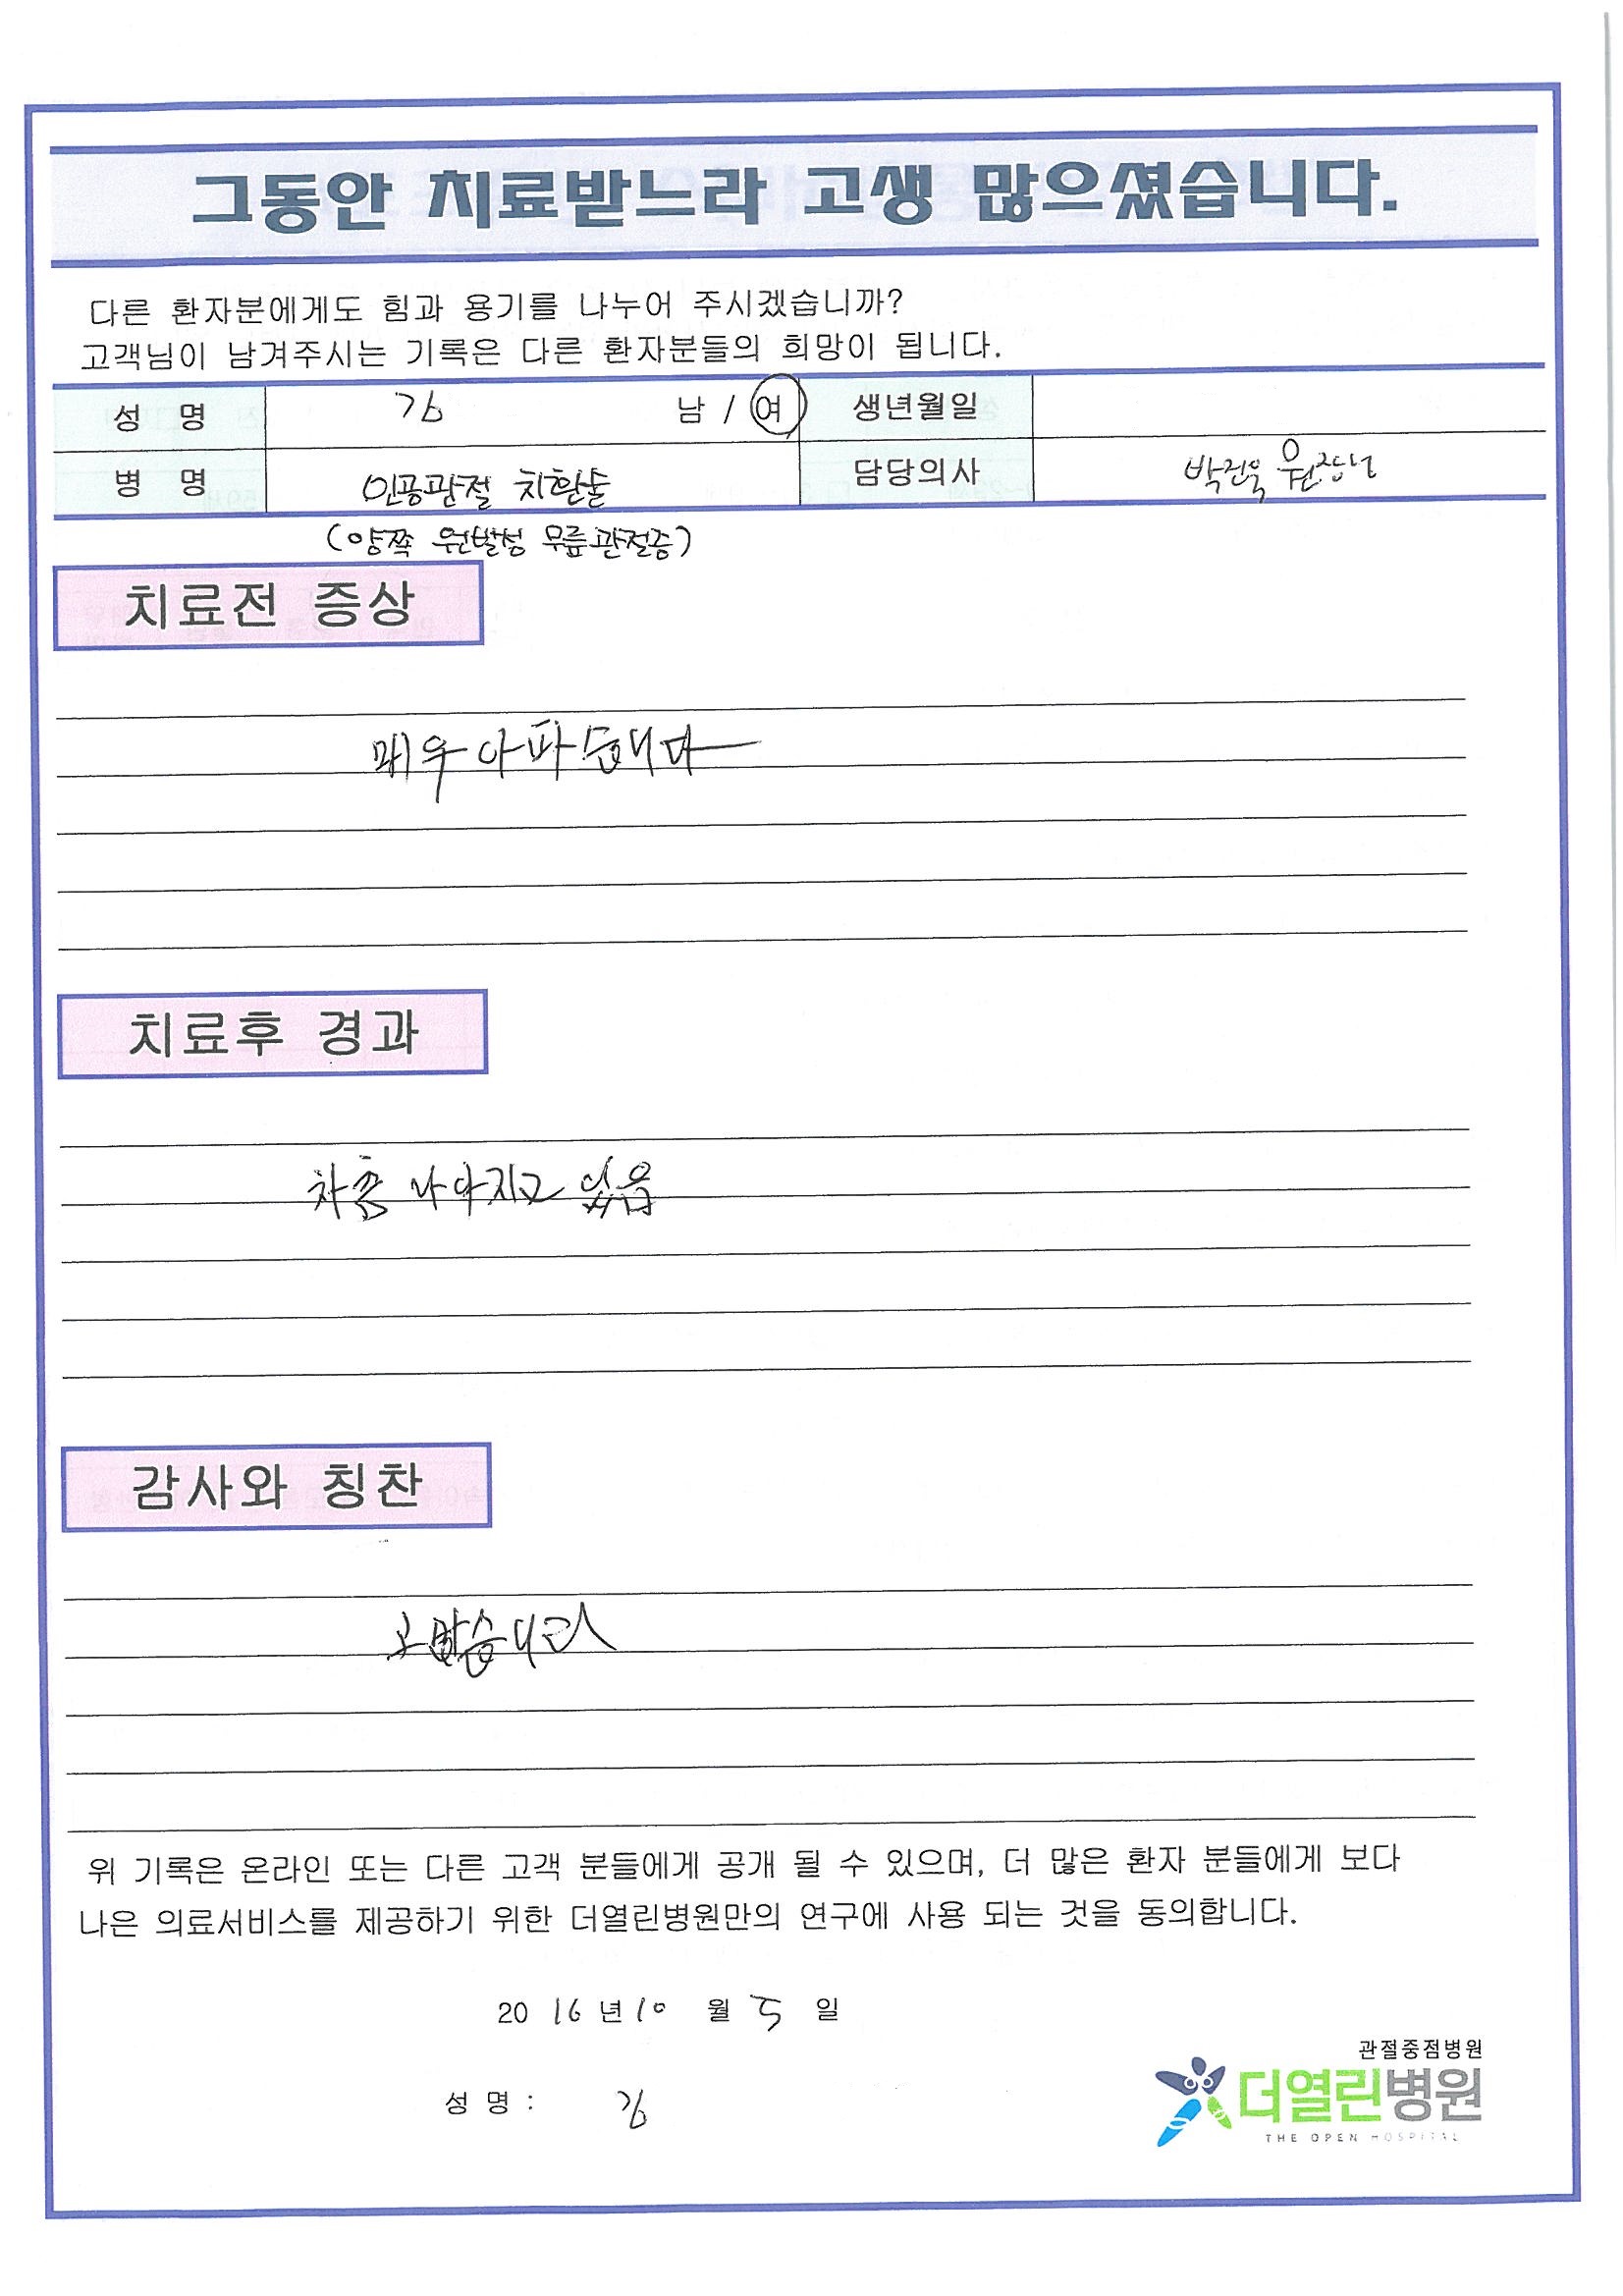 그동안 치료받느라 고생 많으셨습니다.
다른 환자분에게도 힘과 용기를 나누어 주시겠습니까?
고객님이 남겨주시는 기록은 다른 환자분들의 희망이 됩니다.
성 명 김 남 / 여 생년월일
병 명 인공관절 치환술 담당의사 박진욱 원장님
(양쪽 원발성 무릎관절증)
치료전 증상
매우 아파습니다
치료후 경과
차츰 나아지고 있음
감사와 칭찬
고맙습니다
위 기록은 온라인 또는 다른 고객 분들에게 공개 될 수 있으며, 더 많은 환자 분들에게 보다
나은 의료서비스를 제공하기 위한 더열린병원만의 연구에 사용 되는 것을 동의합니다.
2016년 10 월 5 일
관절중점병원
더열린병원
THE OPEN HOSPITAL
성 명 : 김